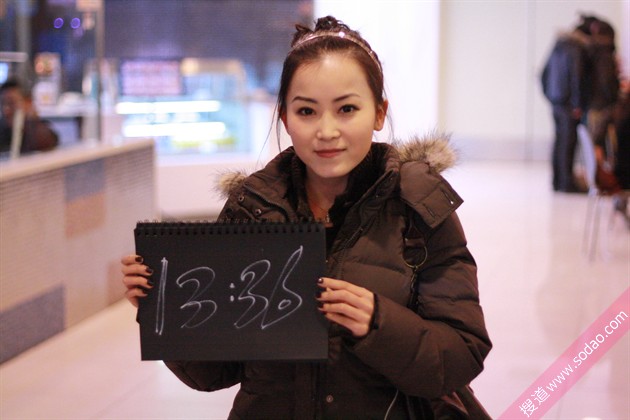 13:36
搜道www.sodao.com